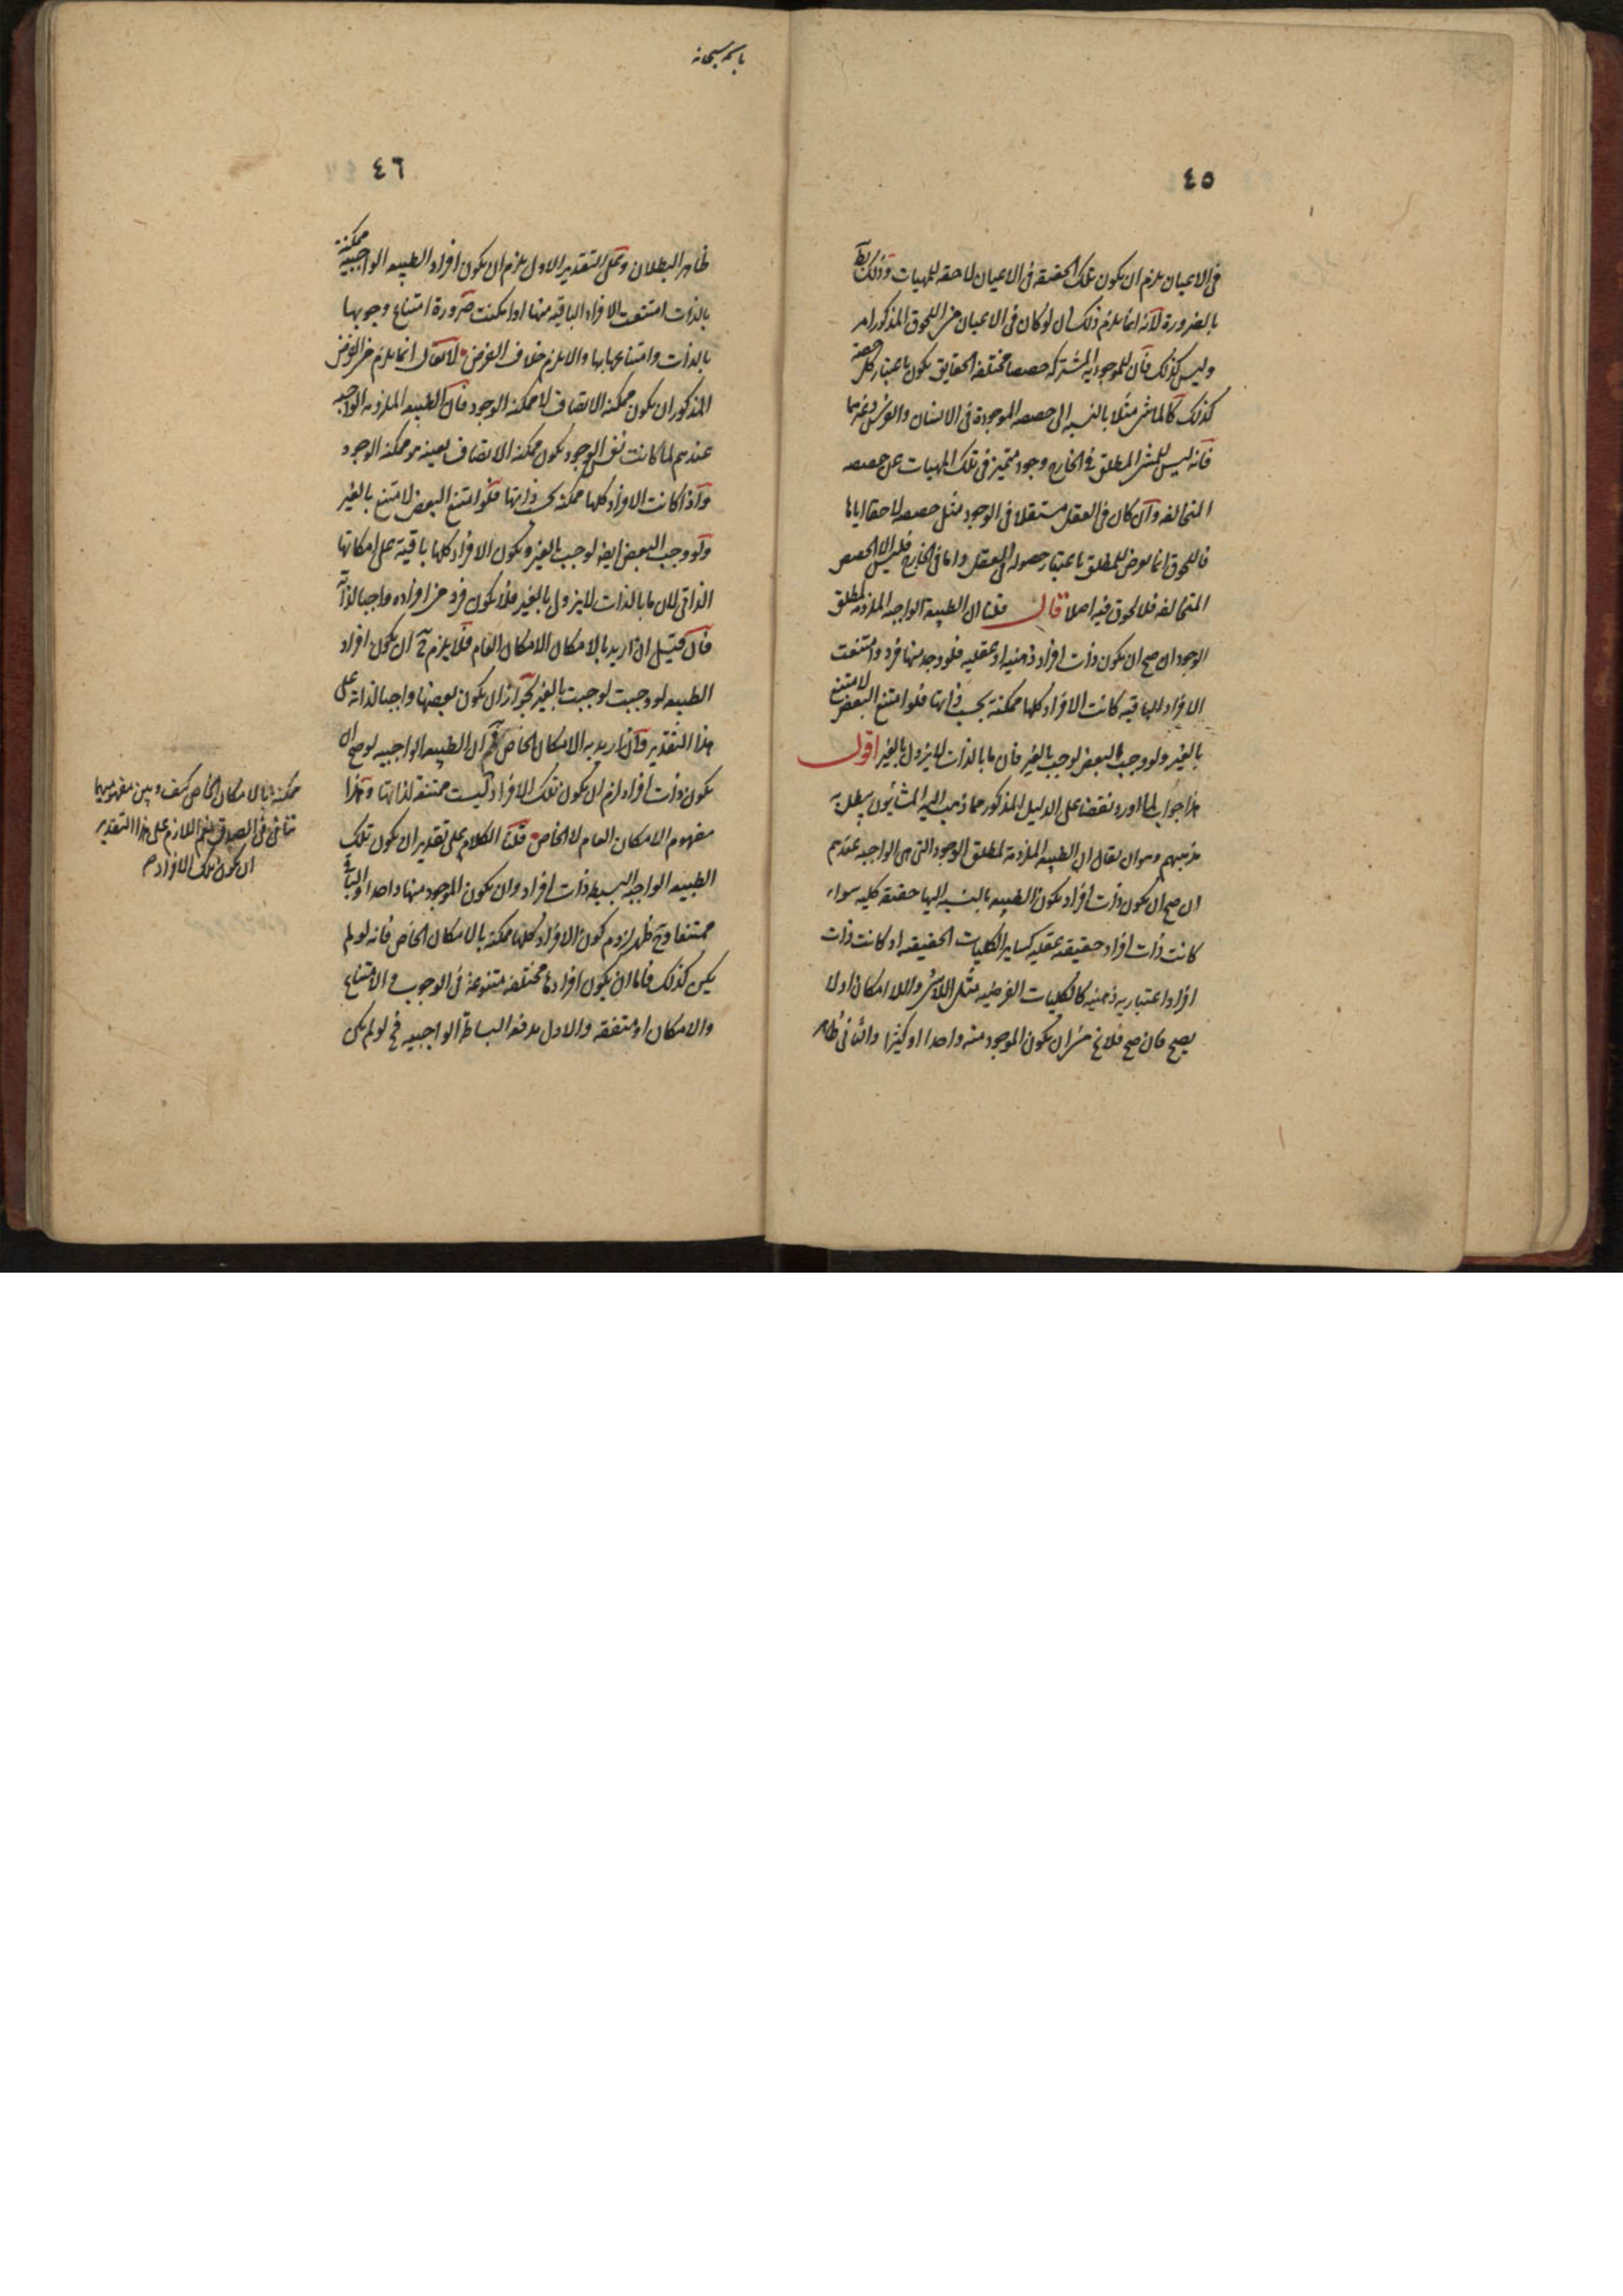 ٤٥
فى الاعيان يلزم ان يكون تلك الحقيقة فى الاعيان لاحقه للمهيات وذلك بط
بالضرورة لانه انما يلزم ذلك ان لو كان فى الاعيان من اللحوق المذكور امر
وليس كذلك فان للموجودية المشتركه حصصا مختلفة الحقايق يكون باعتبار كل حصة
كذلك كالماشى مثلا بالنسبه الى حصصه الموجودة فى الانسان والفرس وغيرهما
فانه ليس للمشى المطلق فى الخارج وجود متميز فى تلك المهيات عن حصصه
المتخالفه وان كان فى العقل مستقلا فى الوجود مثل حصصه لاحقا اياها
فاللحوق انما يعرض للمطلق باعتبار حصوله فى العقل واما فى الخارج فليس الا الحصص
المتخالفه فلا لحوق فيه اصلا قال قلنا ان الطبيعة الواجبه الملزومه لمطلق
الوجود ان صح ان يكون ذات افراد ذهنيه او عقليه فلو وجد منها فرد وامتنعت
الافراد الباقيه كانت الافراد كلها ممكنة بحسب ذاتها فلو امتنع البعض لامتنع
بالغير ولو وجب البعض لوجب بالغير فان ما بالذات لا يزول بالغير اقول
هذا جواب لما اورد نقضا على الدليل المذكور مما ذهب اليه المشائيون يبطل به
مذهبهم وهو ان يقال ان الطبيعه الملزومة لمطلق الوجود التى هى الواجبه عندهم
ان صح ان يكون ذات افراد يكون الطبيعه بالنسبه اليها حقيقه كليه سواء
كانت ذات افراد حقيقيه عقليه كساير الكليات الحقيقيه او كانت ذات
افراد اعتباريه ذهنيه كالكليات الفرضيه مثل اللاشئ واللا امكان او لا
يصح فان صح فلا يخ من ان يكون الموجود منه واحدا او كثيرا والثانى ظاهر
باسمه سبحانه
٤٦
ظاهر البطلان وعلى التقدير الاول يلزم ان يكون افراد الطبيعه الواجبيه ممكنة
بالذات امتنعت الافراد الباقيه منها او امكنت ضرورة امتناع وجوبها
بالذات وامتناعها بها والا يلزم خلاف الفرض لا يقال انما يلزم من الفرض
المذكور ان يكون ممكنة الاتصاف لا ممكنه الوجود فان الطبيعه الملزومه الواجبه
عندهم لما كانت نفس الوجود يكون ممكنة الاتصاف بعينه هو ممكنة الوجود
واذا كانت الافراد كلها ممكنه بحسب ذاتها فلو امتنع البعض لامتنع بالغير
ولو وجب البعض ايضا لوجب بالغير ويكون الافراد كلها باقية على امكانها
الذاتى لان ما بالذات لا يزول بالغير فلا يكون فرد من افراده واجبا لذاته
فان قيل ان اريد بالامكان الامكان العام فلا يلزم ح ان يكون افراد
الطبيعه لو وجبت لوجبت بالغير لجواز ان يكون بعضها واجبا لذاته على
هذا التقدير وان اريد به الامكان الخاص فم ان الطبيعه الواجبيه لو صح ان
يكون ذات افراد لزم ان يكون تلك الافراد ليست ممتنعة لذاتها وهذا
مفهوم الامكان العام لا الخاص قلنا الكلام على تقدير ان يكون تلك
الطبيعه الواجبه البسيطه ذات افراد وان يكون الموجود منها واحدا والباقى
ممتنعا وح ظهر لزوم كون الافراد كلها ممكنة بالامكان الخاص فانه لو لم
يكن كذلك فاما ان يكون افرادها مختلفه متنوعة فى الوجوب والامتناع
والامكان او متفقه والاول يدفعه البساطة الواجبيه فح لو لم يكن
ممكنة بالامكان الخاص كيف وبين مفهوميهما
تنافى فى الصدق نعم اللازم على هذا التقدير
ان يكون تلك الافراد م